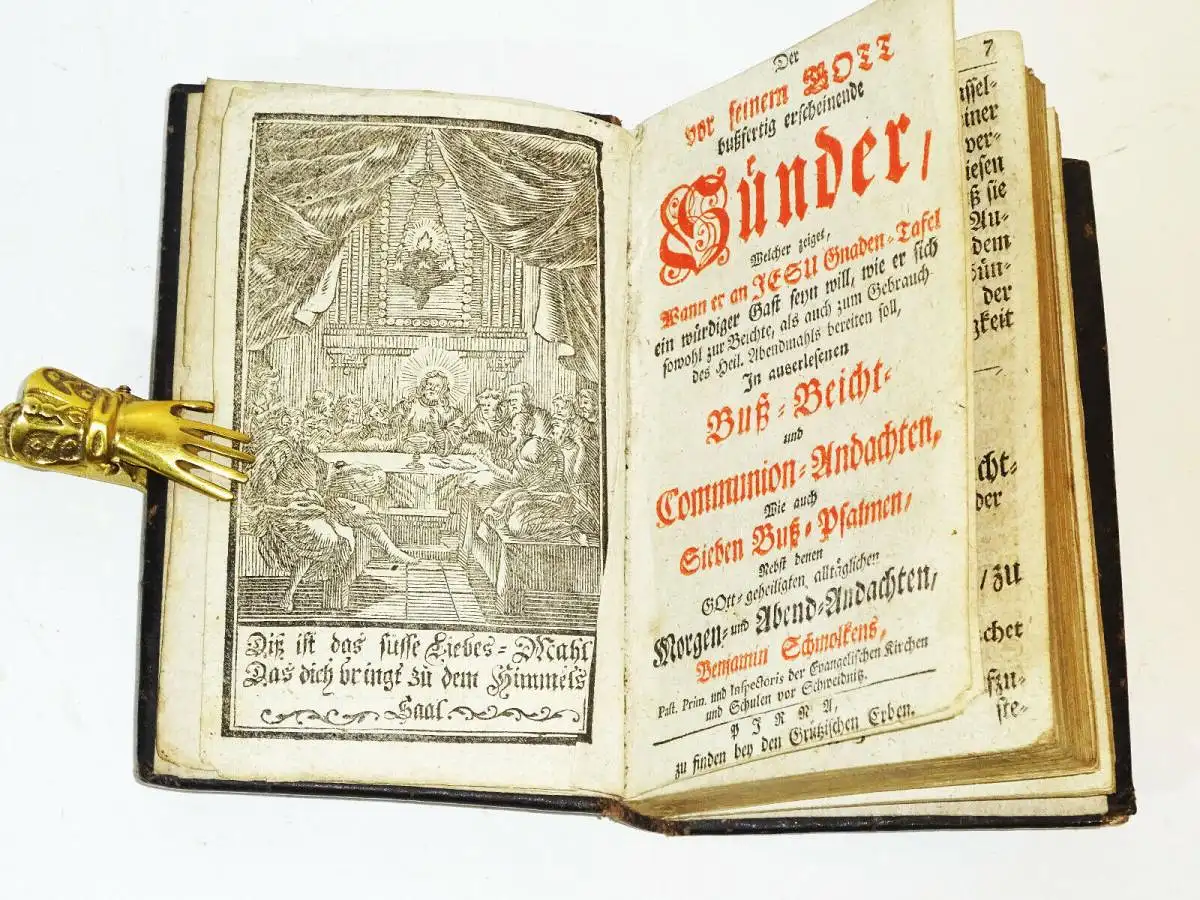 Diß ist das süsse Liebes-Mahl
Das dich bringt zu dem Himmels
Saal.
Der
vor seinem GOTT
bußfertig erscheinende
Sünder,
Welcher zeiget,
Wann er an JESU Gnaden-Tafel
ein würdiger Gast seyn will, wie er sich
sowohl zur Beichte, als auch zum Gebrauch
des Heil. Abendmahls bereiten soll,
In auserlesenen
Buß-Beicht-
und
Communion-Andachten,
Wie auch
Sieben Buß-Psalmen,
Nebst denen
GOtt-geheiligten alltäglichen
Morgen- und Abend-Andachten,
Benjamin Schmolkens,
Past. Prim. und Inspectoris der Evangelischen Kirchen
und Schulen vor Schweidnitz.
PIRNA,
zu finden bey den Grützischen Erben.
7
assel-
einer
ver-
iesen
ß sie
An-
dem
Sün-
der
gkeit
cht-
der
/ zu
chet
fzu-
ste-